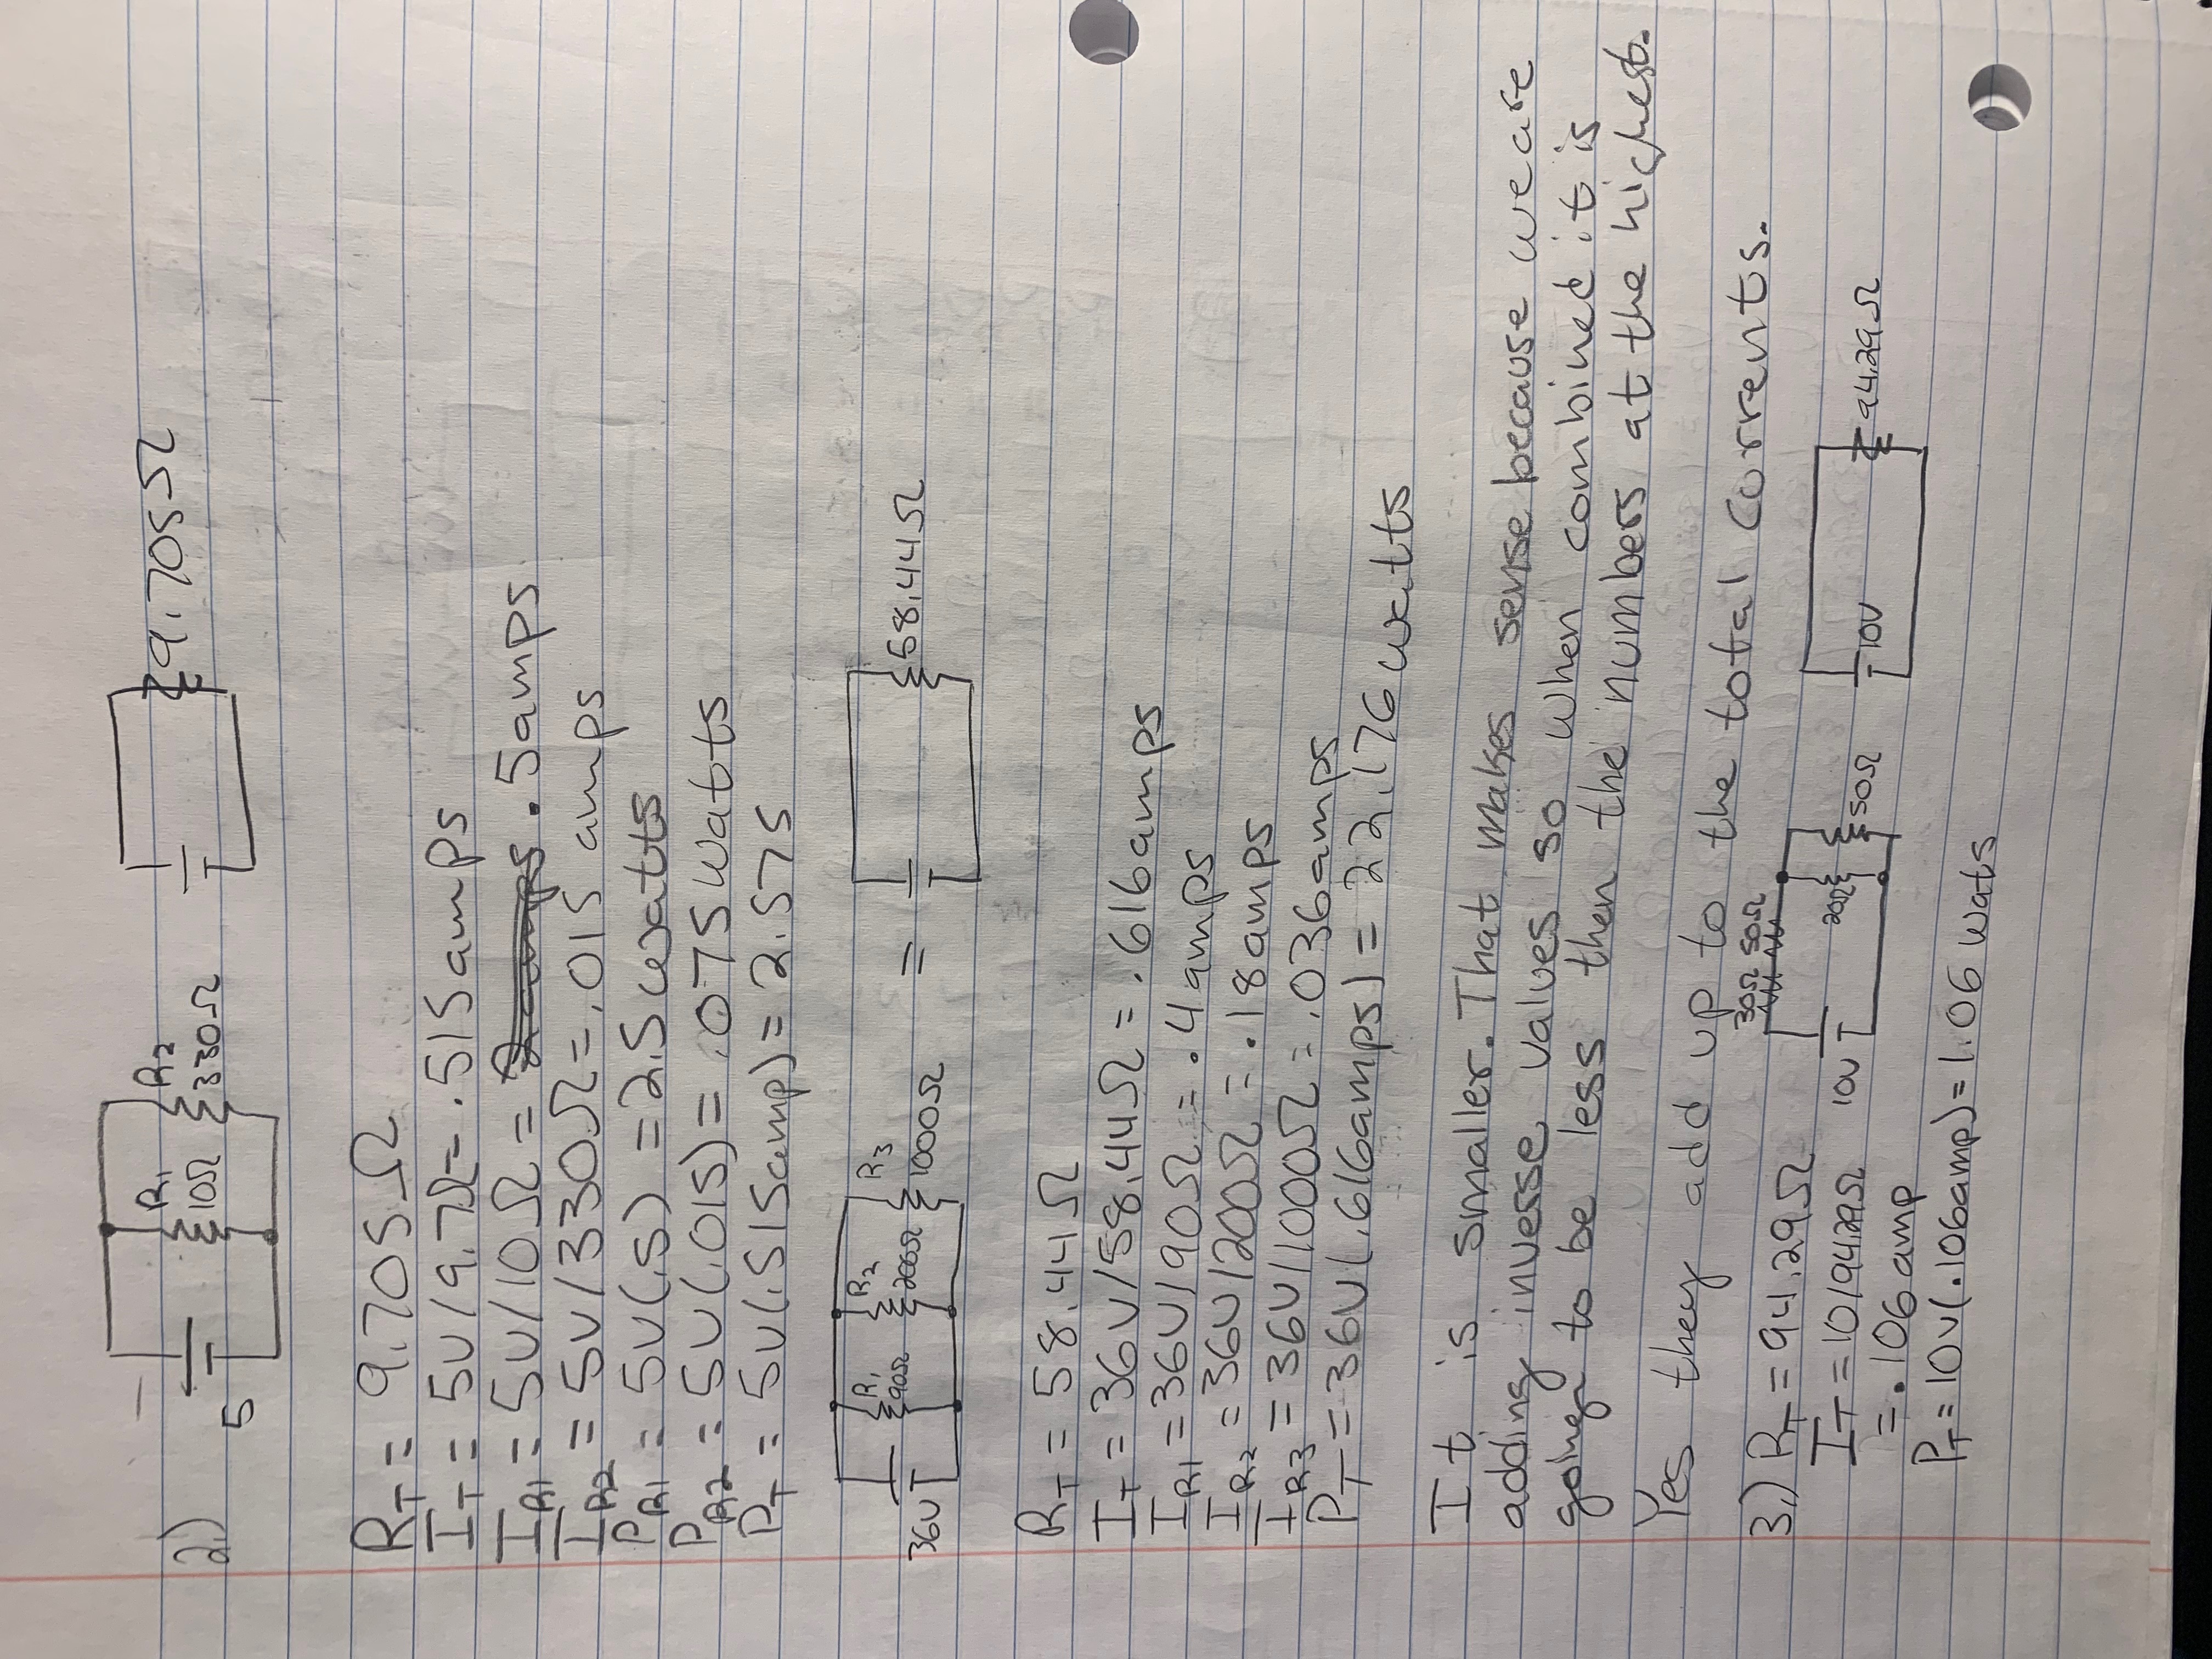 2.)
5
R₁
10Ω
R₂
330Ω
9.705Ω
R_T = 9.705Ω
I_T = 5V/9.7Ω = .515amps
I_R1 = 5V/10Ω = 2amps .5amps
I_R2 = 5V/330Ω = .015 amps
P_R1 = 5V(.5) = 2.5 watts
P_R2 = 5V(.015) = .075 Watts
P_T = 5V(.515amp) = 2.575
36V
R₁
90Ω
R₂
200Ω
R₃
1000Ω
=
58.44Ω
R_T = 58.44Ω
I_T = 36V/58.44Ω = .616amps
I_R1 = 36V/90Ω = .4amps
I_R2 = 36V/200Ω = .18amps
I_R3 = 36V/1000Ω = .036amps
P_T = 36V(.616amps) = 22.176 watts
It is smaller. That makes sense because we are
adding inverse values so when combined it is
going to be less then the numbers at the highest.
Yes they add up to the total corrents.
3.) R_T = 94.29Ω
I_T = 10/94.29Ω
= .106 amp
P_T = 10V(.106amp) = 1.06 wats
30Ω 50Ω
10V
20Ω
50Ω
10V
94.29Ω